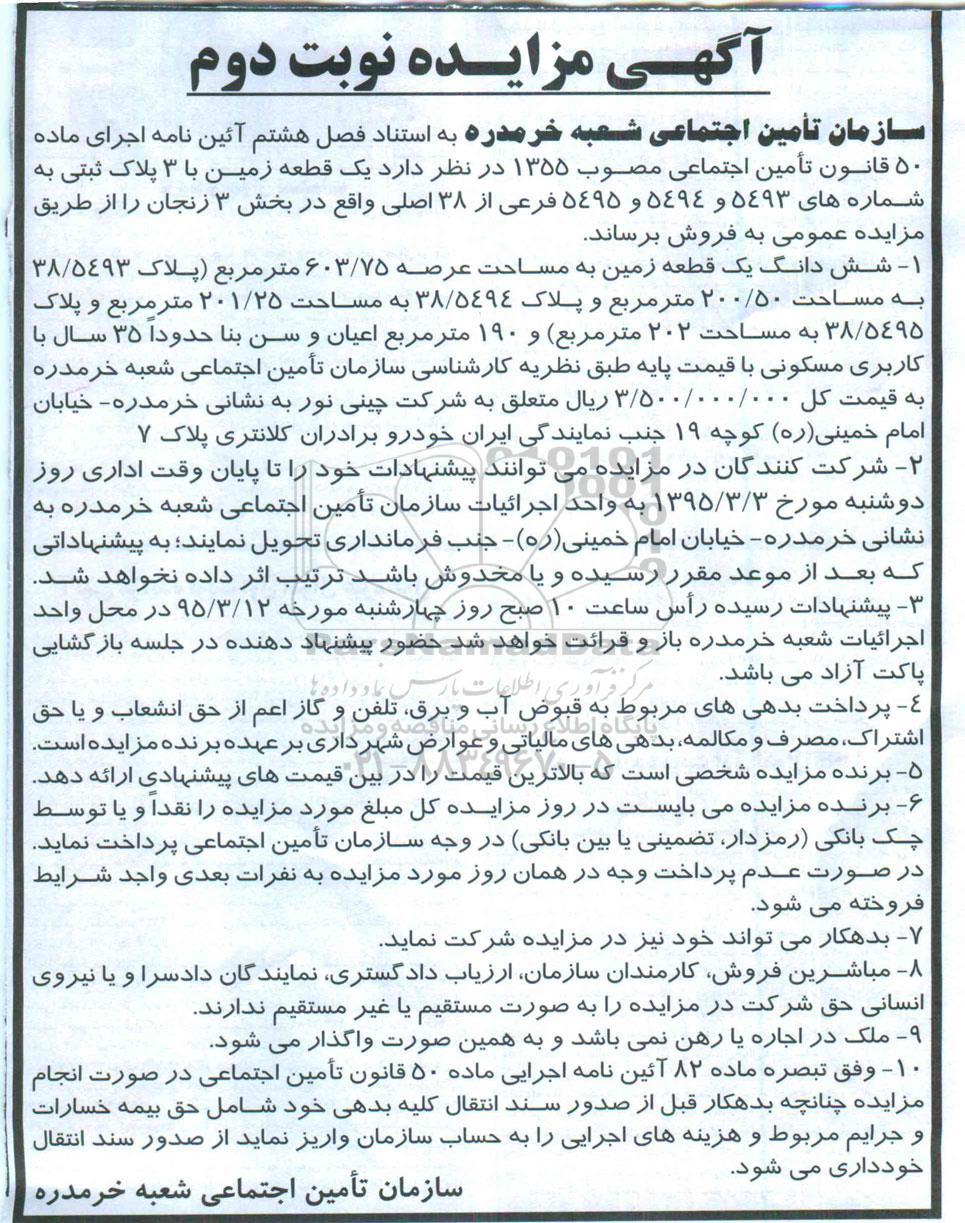 آگهی مزایده نوبت دوم
سازمان تأمین اجتماعی شعبه خرمدره به استناد فصل هشتم آئین نامه اجرای ماده
۵۰ قانون تأمین اجتماعی مصوب ۱۳۵۵ در نظر دارد یک قطعه زمین با ۳ پلاک ثبتی به
شماره های ۵٤۹۳ و ۵٤۹٤ و ۵٤۹۵ فرعی از ۳۸ اصلی واقع در بخش ۳ زنجان را از طریق
مزایده عمومی به فروش برساند.
۱- شش دانگ یک قطعه زمین به مساحت عرصه ۶۰۳/۷۵ مترمربع (پلاک ۳۸/۵٤۹۳
به مساحت ۲۰۰/۵۰ مترمربع و پلاک ۳۸/۵٤۹٤ به مساحت ۲۰۱/۲۵ مترمربع و پلاک
۳۸/۵٤۹۵ به مساحت ۲۰۲ مترمربع) و ۱۹۰ مترمربع اعیان و سن بنا حدوداً ۳۵ سال با
کاربری مسکونی با قیمت پایه طبق نظریه کارشناسی سازمان تأمین اجتماعی شعبه خرمدره
به قیمت کل ۳/۵۰۰/۰۰۰/۰۰۰ ریال متعلق به شرکت چینی نور به نشانی خرمدره- خیابان
امام خمینی(ره) کوچه ۱۹ جنب نمایندگی ایران خودرو برادران کلانتری پلاک ۷
۲- شرکت کنندگان در مزایده می توانند پیشنهادات خود را تا پایان وقت اداری روز
دوشنبه مورخ ۱۳۹۵/۳/۳ به واحد اجرائیات سازمان تأمین اجتماعی شعبه خرمدره به
نشانی خرمدره- خیابان امام خمینی(ره)- جنب فرمانداری تحویل نمایند؛ به پیشنهاداتی
که بعد از موعد مقرر رسیده و یا مخدوش باشد ترتیب اثر داده نخواهد شد.
۳- پیشنهادات رسیده رأس ساعت ۱۰ صبح روز چهارشنبه مورخه ۹۵/۳/۱۲ در محل واحد
اجرائیات شعبه خرمدره باز و قرائت خواهد شد حضور پیشنهاد دهنده در جلسه بازگشایی
پاکت آزاد می باشد.
ParsNamadData
مرکز فرآوری اطلاعات پارس نماد داده ها
٤- پرداخت بدهی های مربوط به قبوض آب و برق، تلفن و گاز اعم از حق انشعاب و یا حق
پایگاه اطلاع رسانی مناقصه و مزایده
اشتراک، مصرف و مکالمه، بدهی های مالیاتی و عوارض شهرداری بر عهده برنده مزایده است.
۰۲۱-۸۸۳۴۹۶۷۰-۵
۵- برنده مزایده شخصی است که بالاترین قیمت را در بین قیمت های پیشنهادی ارائه دهد.
۶- برنده مزایده می بایست در روز مزایده کل مبلغ مورد مزایده را نقداً و یا توسط
چک بانکی (رمزدار، تضمینی یا بین بانکی) در وجه سازمان تأمین اجتماعی پرداخت نماید.
در صورت عدم پرداخت وجه در همان روز مورد مزایده به نفرات بعدی واجد شرایط
فروخته می شود.
۷- بدهکار می تواند خود نیز در مزایده شرکت نماید.
۸- مباشرین فروش، کارمندان سازمان، ارزیاب دادگستری، نمایندگان دادسرا و یا نیروی
انسانی حق شرکت در مزایده را به صورت مستقیم یا غیر مستقیم ندارند.
۹- ملک در اجاره یا رهن نمی باشد و به همین صورت واگذار می شود.
۱۰- وفق تبصره ماده ۸۲ آئین نامه اجرایی ماده ۵۰ قانون تأمین اجتماعی در صورت انجام
مزایده چنانچه بدهکار قبل از صدور سند انتقال کلیه بدهی خود شامل حق بیمه خسارات
و جرایم مربوط و هزینه های اجرایی را به حساب سازمان واریز نماید از صدور سند انتقال
خودداری می شود.
سازمان تأمین اجتماعی شعبه خرمدره